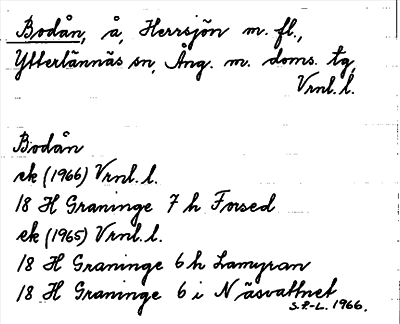 Bodån, å, Herrsjön m. fl.,
Ytterlännäs sn, Ång. m. doms. tg,
Vrnl. l.
Bodån
ek (1966) Vrnl. l.
18 H Graninge 7 h Forsed
ek (1965) Vrnl. l.
18 H Graninge 6 h Lamyran
18 H Graninge 6 i Näsvattnet
S.P.-L. 1966.